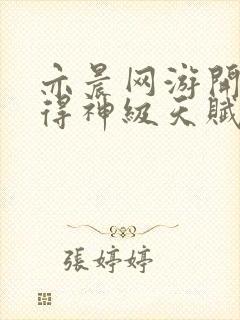 亦晨网游開
得神級天賦
張婷婷